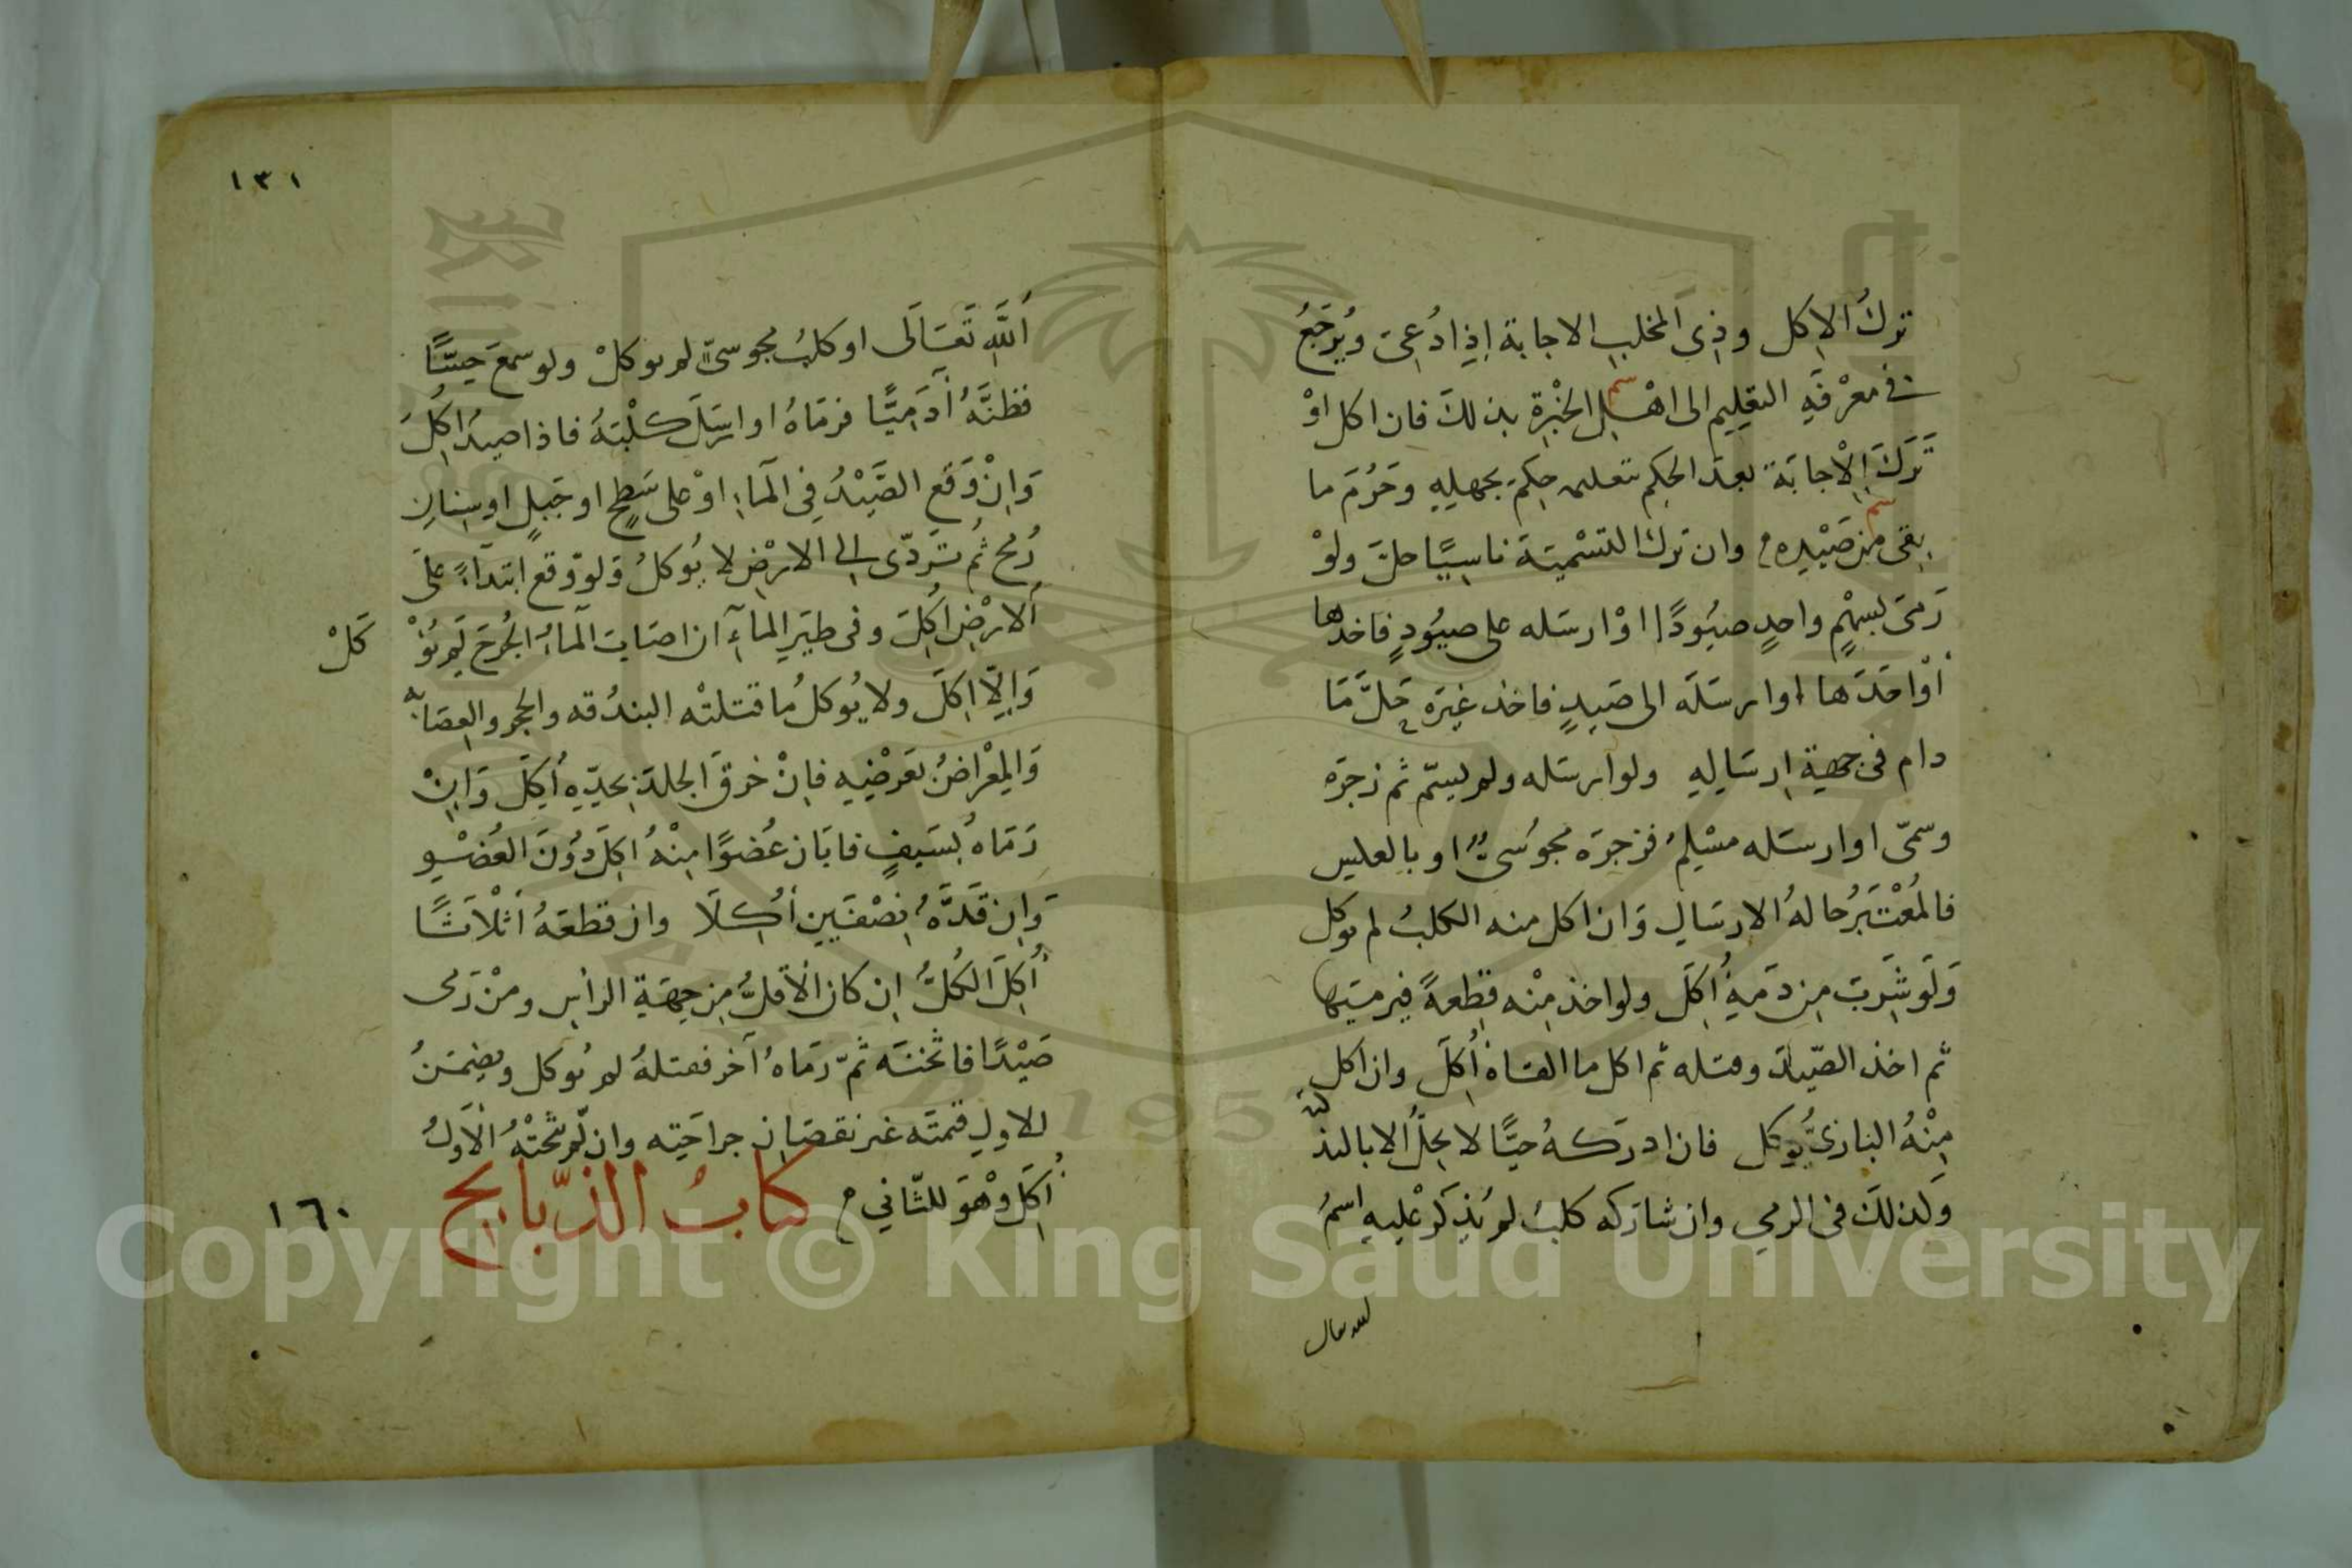 ترك الاكل وذى المخلب الاجابة اذا دعى ويرجع
فى معرفة التعليم الى اهل الخبرة بذلك فان اكل او
سم
ترك الاجابة بعد الحكم بتعليمه حكم بجهله وحرم ما
سم
بقى من صيده وان ترك التسمية ناسيا حل ولو
رمى بسهم واحد صيودا او ارسله على صيود فاخدها
او احدها او ارسله الى صيد فاخذ غيره حل ما
دام فى جهة ارساله ولو ارسله ولم يسم ثم زجره
وسمى او ارسله مسلم فزجره مجوسى او بالعكس
فالمعتبر حالة الارسال وان اكل منه الكلب لم يوكل
ولو شرب من دمه اكل ولو اخذ منه قطعة فرميتها
ثم اخذ الصيد وقتله ثم اكل ما القاه اكل وان اكل
منه البازى يوكل فان ادركه حيا لا يحل الا بالتذكية
وكذلك فى الرمى وان شاركه كلب لم يذكر عليه اسم
الله تعالى
١٣١
الله تعالى او كلب مجوسى لم يوكل ولو سمع حسا
فظنه آدميا فرماه او ارسل كلبه فاذا صيد اكل
وان وقع الصيد فى الماء او على سطح او جبل او سنان
رمح ثم تردى الى الارض لا يوكل ولو وقع ابتداء على
الارض اكل وفى طير الماء ان اصاب الماء الجرح لم يؤ
كل
والا اكل ولا يوكل ما قتلته البندقه والحجر والعصابه
والمعراض بعرضه فان خرق الجلد بحده اكل وان
رماه بسيف فابان عضوا منه اكل دون العضو
وان قده نصفين أكلا وان قطعه أثلاثا
أكل الكل ان كان الأقل من جهة الراس ومن رمى
صيدا فاثخنه ثم رماه آخر فقتله لم يوكل ويضمن
للاول قيمته غير نقصان جراحته وان لم يثخنه الأول
أكل وهو للثاني كتاب الذبايح
١٦٠
Copyright © King Saud University
1957